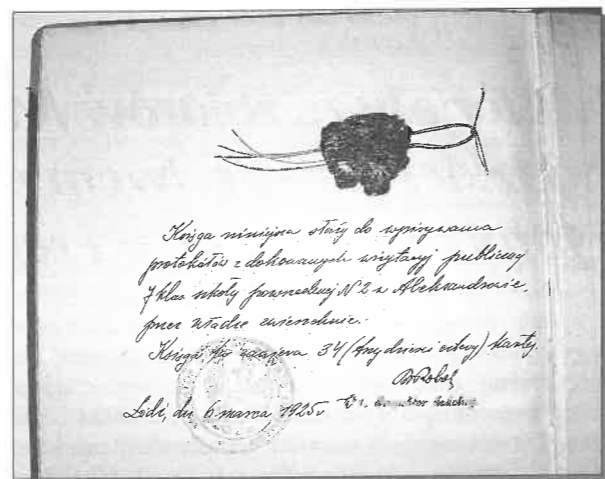 Księga niniejsza służy do wpisywania
protokółów z dokonanych wizytacyj publicznej
7 klas szkoły powszechnej N 2 w Aleksandrowie,
przez władze zwierzchnie.
Księga ta zawiera 34 (trzydzieści cztery) kartki.
Łódź, dn 6 marca 1925 r